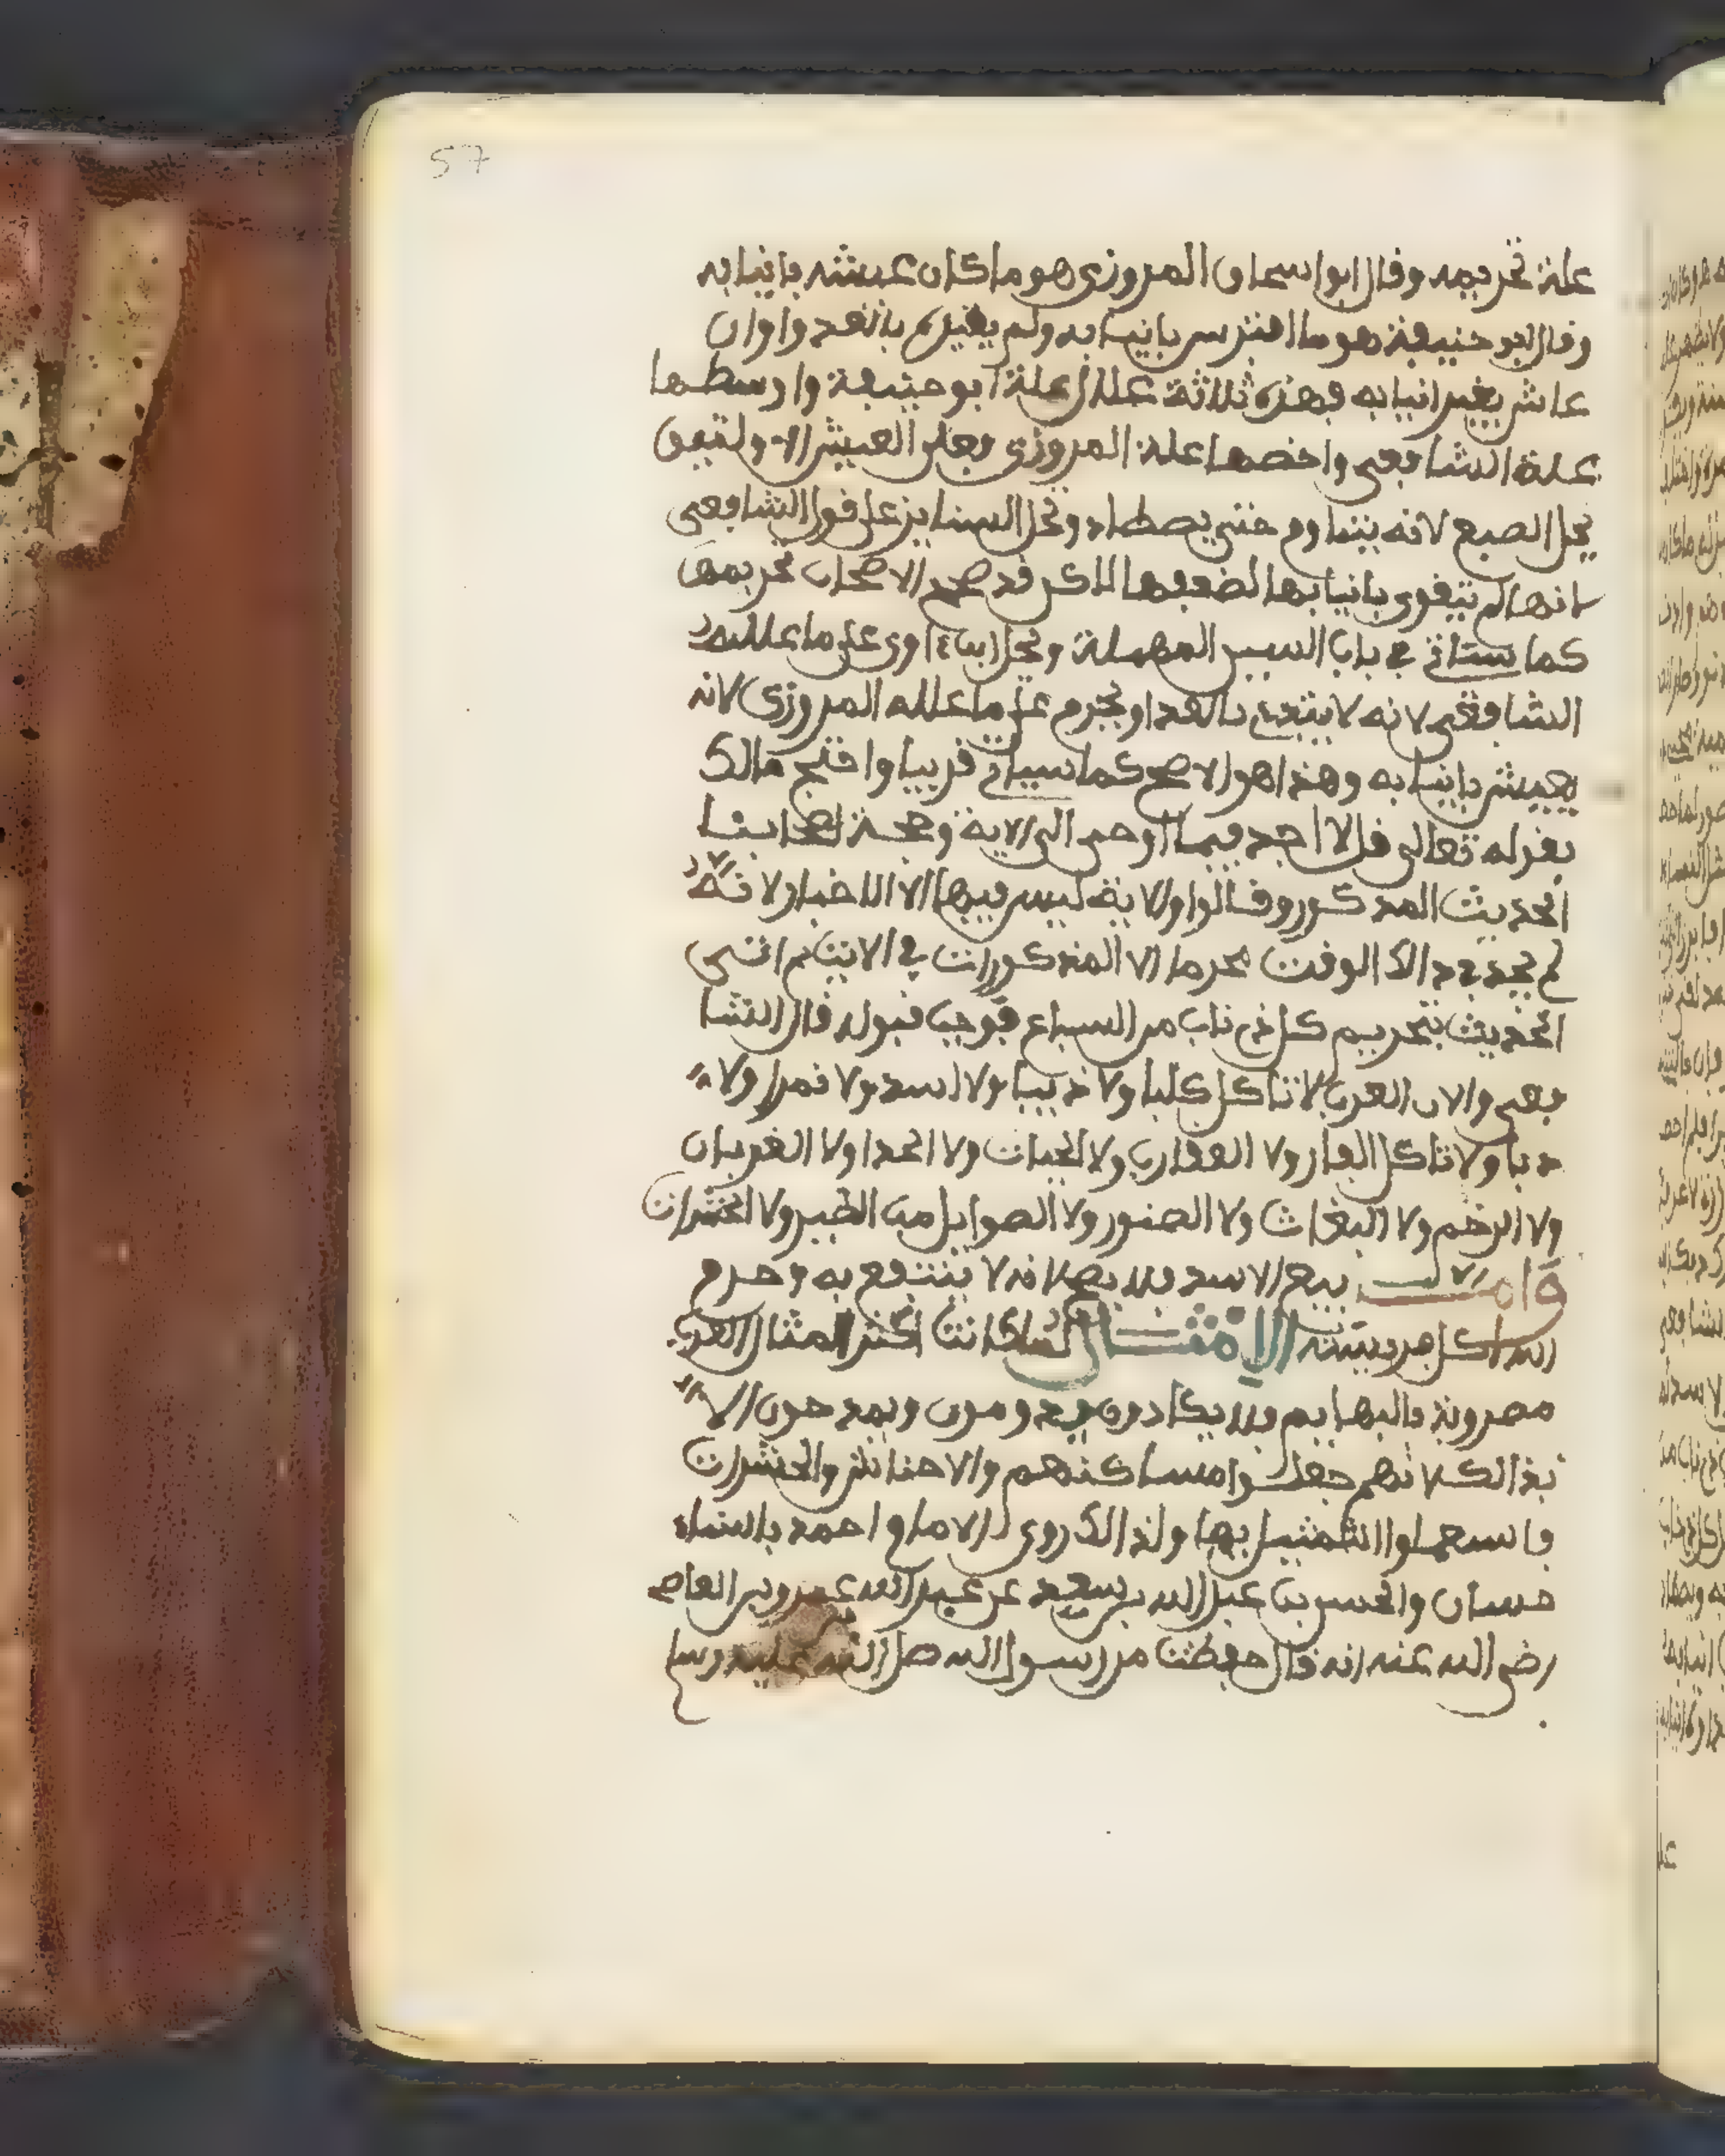 57
علة تحريمه وقال ابو اسحاق المروزي هو ما كان عيشه بانيابه
وقال ابو حنيفة هو ما افترس بانيابه ولم يغيره بالغدوا وان
عاش بغير انيابه فهذه ثلاثة علل علة ابو حنيفة واوسطها
علة الشافعي واخصها علة المروزي فعلى العيش الاول تبقى
يحل الضبع لانه يتناوم حتى يصطاد وتحل السنانير على قول الشافعي
لانها لم تتقوى بانيابها لضعفها لاكن قد صحح الاصحاب تحريمها
كما ستاتي في باب السين المهملة ويحل ابن ءاوى على ما علله
الشافعي لانه لا يبتدئ بالعدا ويحرم على ما علله المروزي لانه
يعيش بانيابه وهذا هو الاصح كما سياتي قريبا واحتج مالك
بقوله تعالى قل لا اجد فيما اوحى الي الاية وحجة اصحابنا
الحديث المذكور وقالوا والاية ليس فيها الا الاخبار لانه
لم يجد في ذالك الوقت محرما الا المذكورات في الاية ثم اتى
الحديث بتحريم كل ذي ناب من السباع فوجب قبوله قال الشا
فعي ولان العرب لا تاكل كلبا ولا ذيبا ولا اسد ولا نمرا ولا
دبا ولا تاكل الفار ولا العقارب ولا الحيات ولا الحدا ولا الغربان
ولا الرخم ولا البغاث ولا الصقور ولا الصوايل من الطير ولا الحشرات
وامـا بيع الاسد فلا يصح لانه لا ينتفع به وحرم
الله اكل فريسته الامثـال لما كانت اكثر امثال العرب
مضروبة بالبهايم فلا يكادون يذمون ويمدحون الا
بذالك لانهم جعلوا مساكنهم والاحناش والحشرات
فاسعملوا التمثيل بها ولذالك روى الامام احمد باسناد
حسان والحسن بن عبد الله بن سعيد عن عبد الله عمرو بن العاص
رضي الله عنه انه قال حفظت من رسول الله صلى الله عليه وسلم